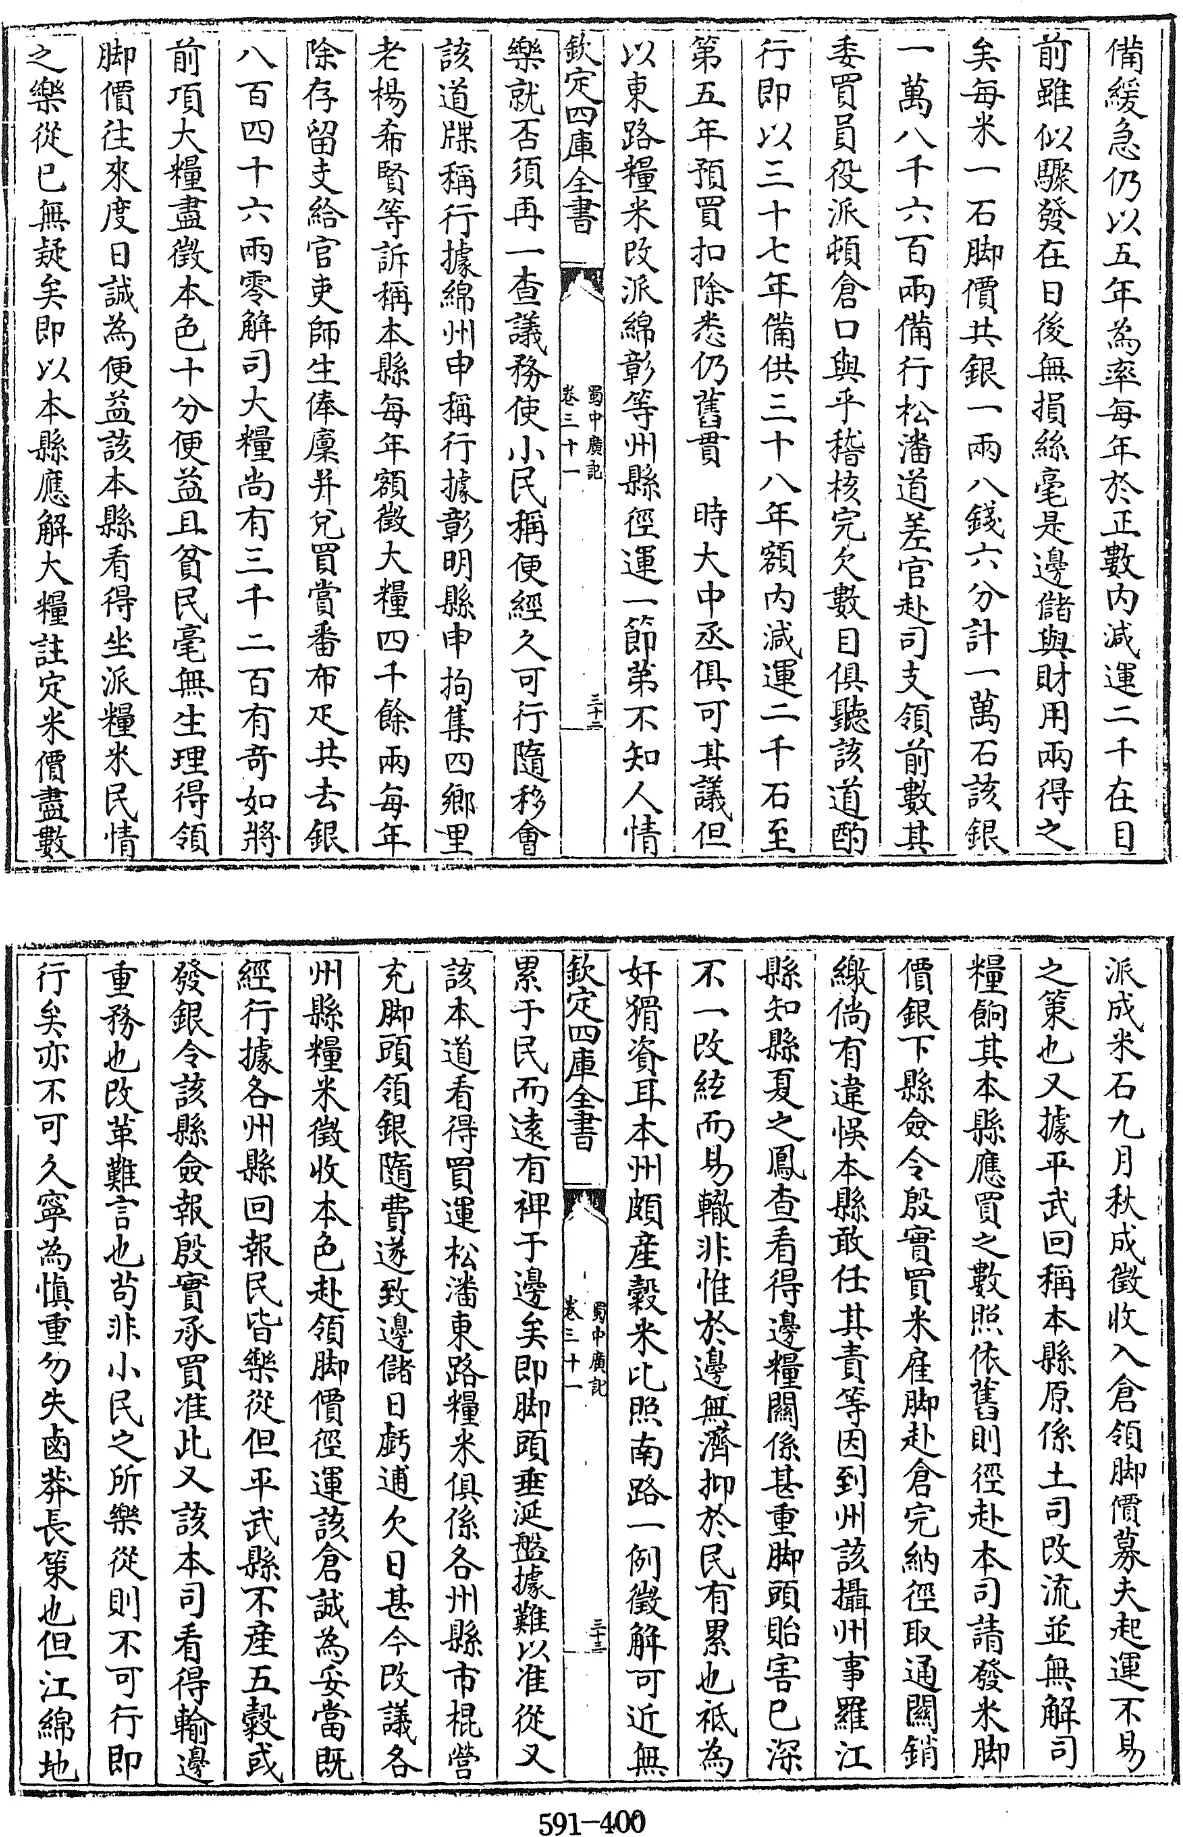 備緩急仍以五年為率每年於正數内減運二千在目
前雖似驟發在日後無損絲毫是邊儲與財用兩得之
矣每米一石脚價共銀一兩八錢六分計一萬石該銀
一萬八千六百兩備行松潘道差官赴司支領前數其
委買員役派頓倉口與乎稽核完欠數目俱聽該道酌
行即以三十七年備供三十八年額内減運二千石至
第五年預買扣除悉仍舊貫　時大中丞俱可其議但
以東路糧米改派綿彰等州縣徑運一節第不知人情
欽定四庫全書
蜀中廣記
卷三十一
三十二
樂就否須再一查議務使小民稱便經久可行隨移會
該道牒稱行據綿州申稱行據彰明縣申拘集四鄉里
老楊希賢等訴稱本縣每年額徵大糧四千餘兩每年
除存留支給官吏師生俸廩并兌買賞番布疋共去銀
八百四十六兩零解司大糧尚有三千二百有奇如將
前項大糧盡徵本色十分便益且貧民毫無生理得領
脚價往來度日誠為便益該本縣看得坐派糧米民情
之樂從已無疑矣即以本縣應解大糧註定米價盡數
派成米石九月秋成徵收入倉領脚價募夫起運不易
之策也又據平武回稱本縣原係土司改流並無解司
糧餉其本縣應買之數照依舊則徑赴本司請發米脚
價銀下縣僉令殷實買米雇脚赴倉完納徑取通關銷
繳倘有違悞本縣敢任其責等因到州該攝州事羅江
縣知縣夏之鳳查看得邊糧關係甚重脚頭貽害已深
不一改絃而易轍非惟於邊無濟抑於民有累也祗為
奸猾資耳本州頗產穀米比照南路一例徵解可近無
欽定四庫全書
蜀中廣記
卷三十一
三十三
累于民而遠有禆于邊矣即脚頭垂涎盤據難以准從又
該本道看得買運松潘東路糧米俱係各州縣市棍營
充脚頭領銀隨費遂致邊儲日虧逋欠日甚今改議各
州縣糧米徵收本色赴領脚價徑運該倉誠為妥當既
經行據各州縣回報民皆樂從但平武縣不產五穀或
發銀令該縣僉報殷實承買准此又該本司看得輸邊
重務也改革難言也苟非小民之所樂從則不可行即
行矣亦不可久寧為慎重勿失鹵莽長策也但江綿地
591-400